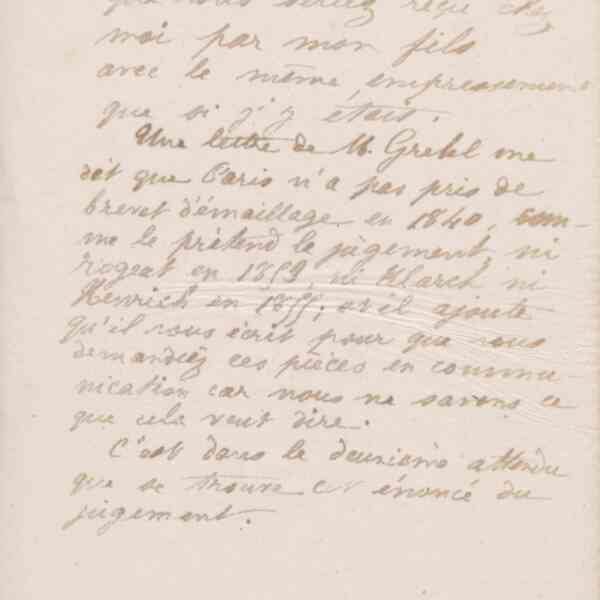 que vous seriez reçu chez
moi par mon fils
avec le même empressement
que si j'y étais.
Une lettre de M. Grebel me
dit que Paris n'a pas pris de
brevet d'émaillage en 1840, com-
me le prétend le jugement, ni
rogeat en 1853, ni Klarck ni
Henrich en 1855; or il ajoute
qu'il vous écrit pour que vous
demandiez ces pièces en commu-
nication car nous ne savons ce
que cela veut dire.
C'est dans le deuxième attendu
que se trouve cet énoncé du
jugement.